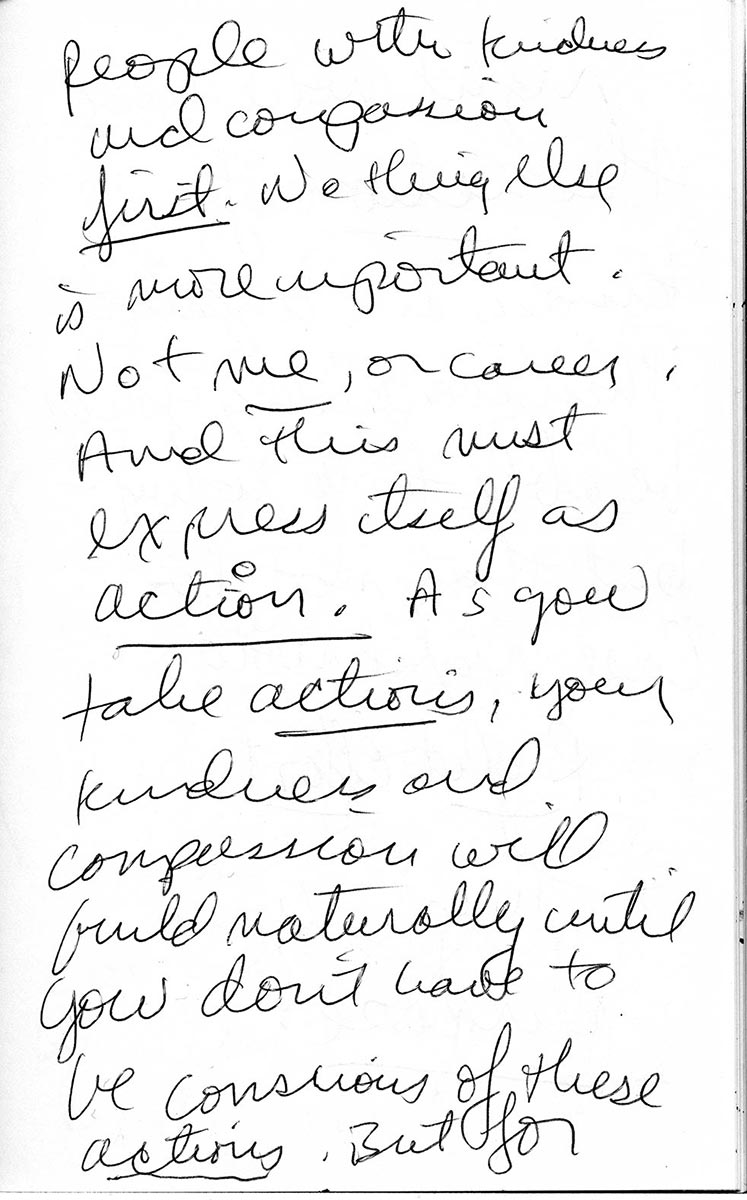 people with kindness
and compassion
first. Nothing else
is more important.
Not me, or career.
And this must
express itself as
action. As you
take actions, your
kindness and
compassion will
build naturally until
you don't have to
be conscious of these
actions. But for